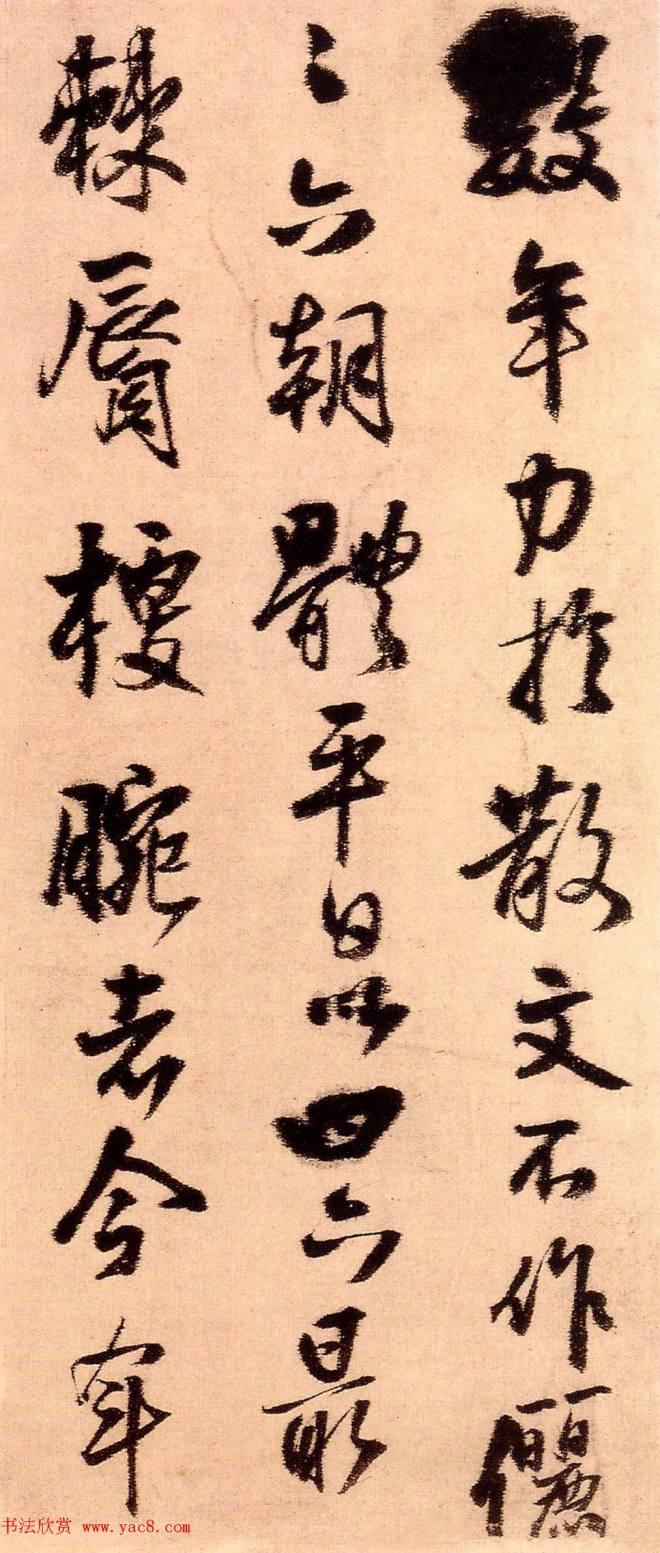 數年力於散文不作儷
〻六朝體平日以四六最
棘脣梗腕者今年
书法欣赏 www.yac8.com